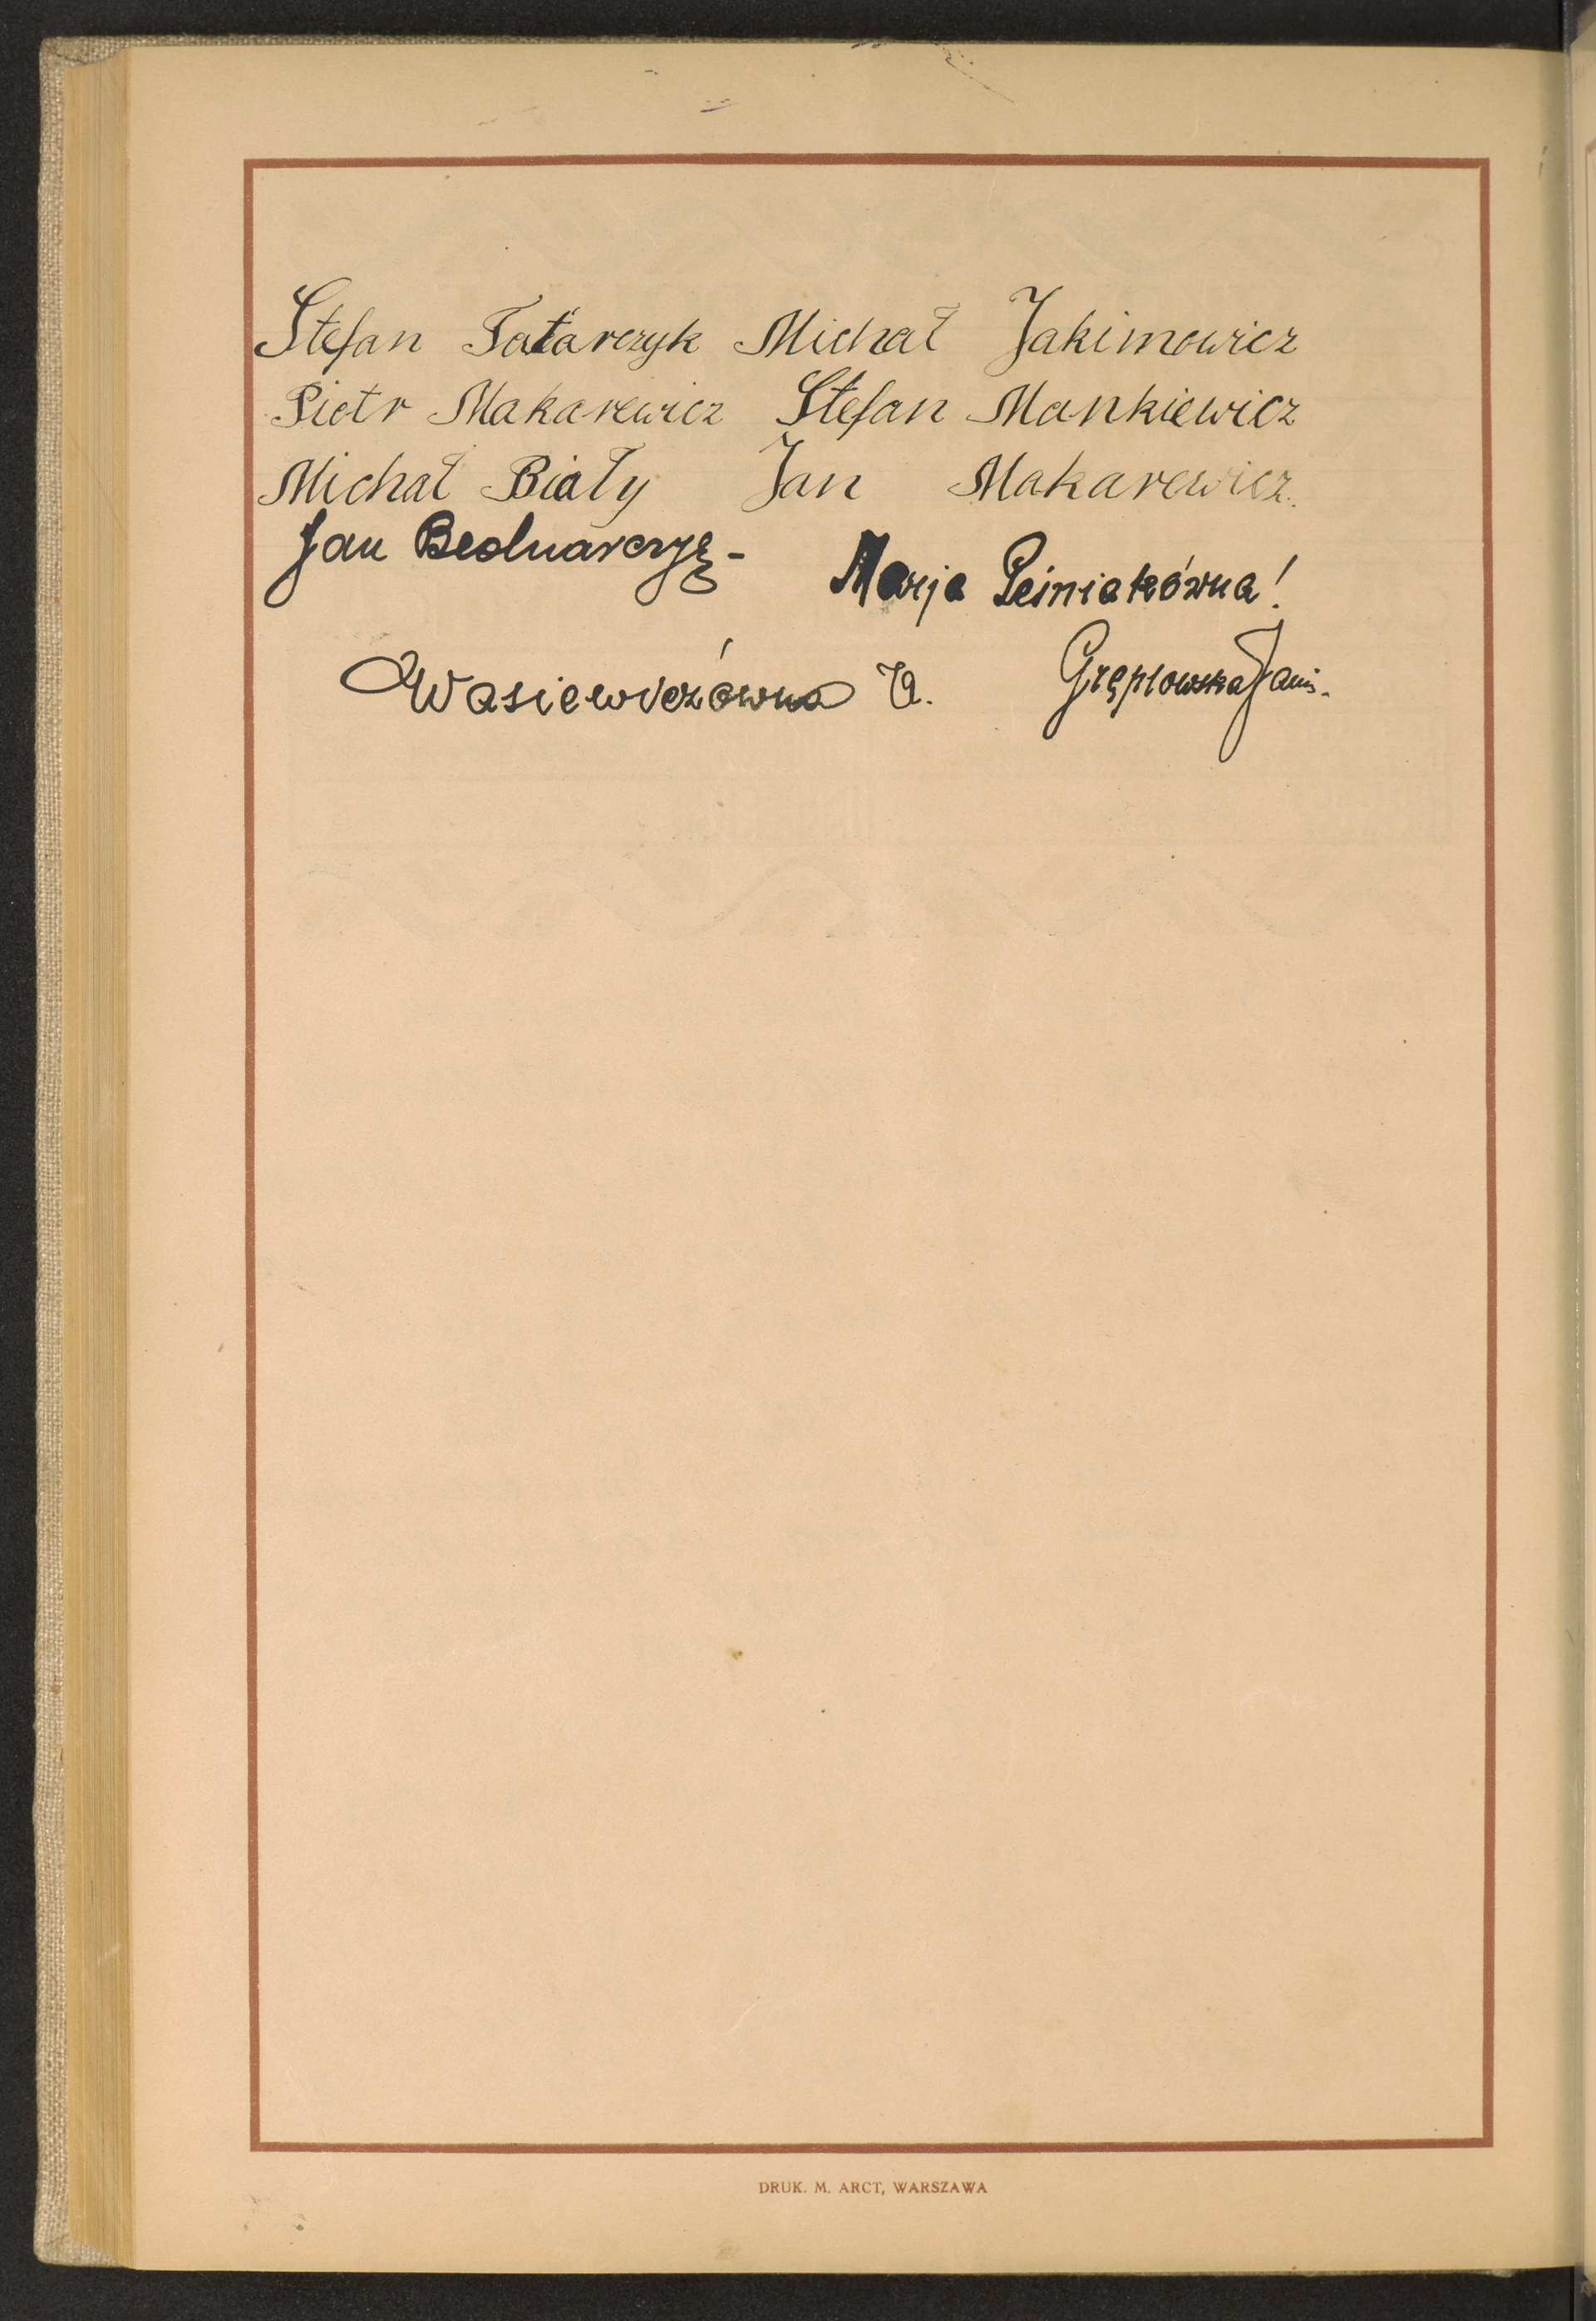 Stefan Tatarczyk Michał Jakimowicz
Piotr Makarewicz Stefan Mankiewicz
Michał Biały Jan Makarewicz.
Jan Marja Leśniakówna!
Wasiewiczówna
DRUK. M. ARCT, WARSZAWA